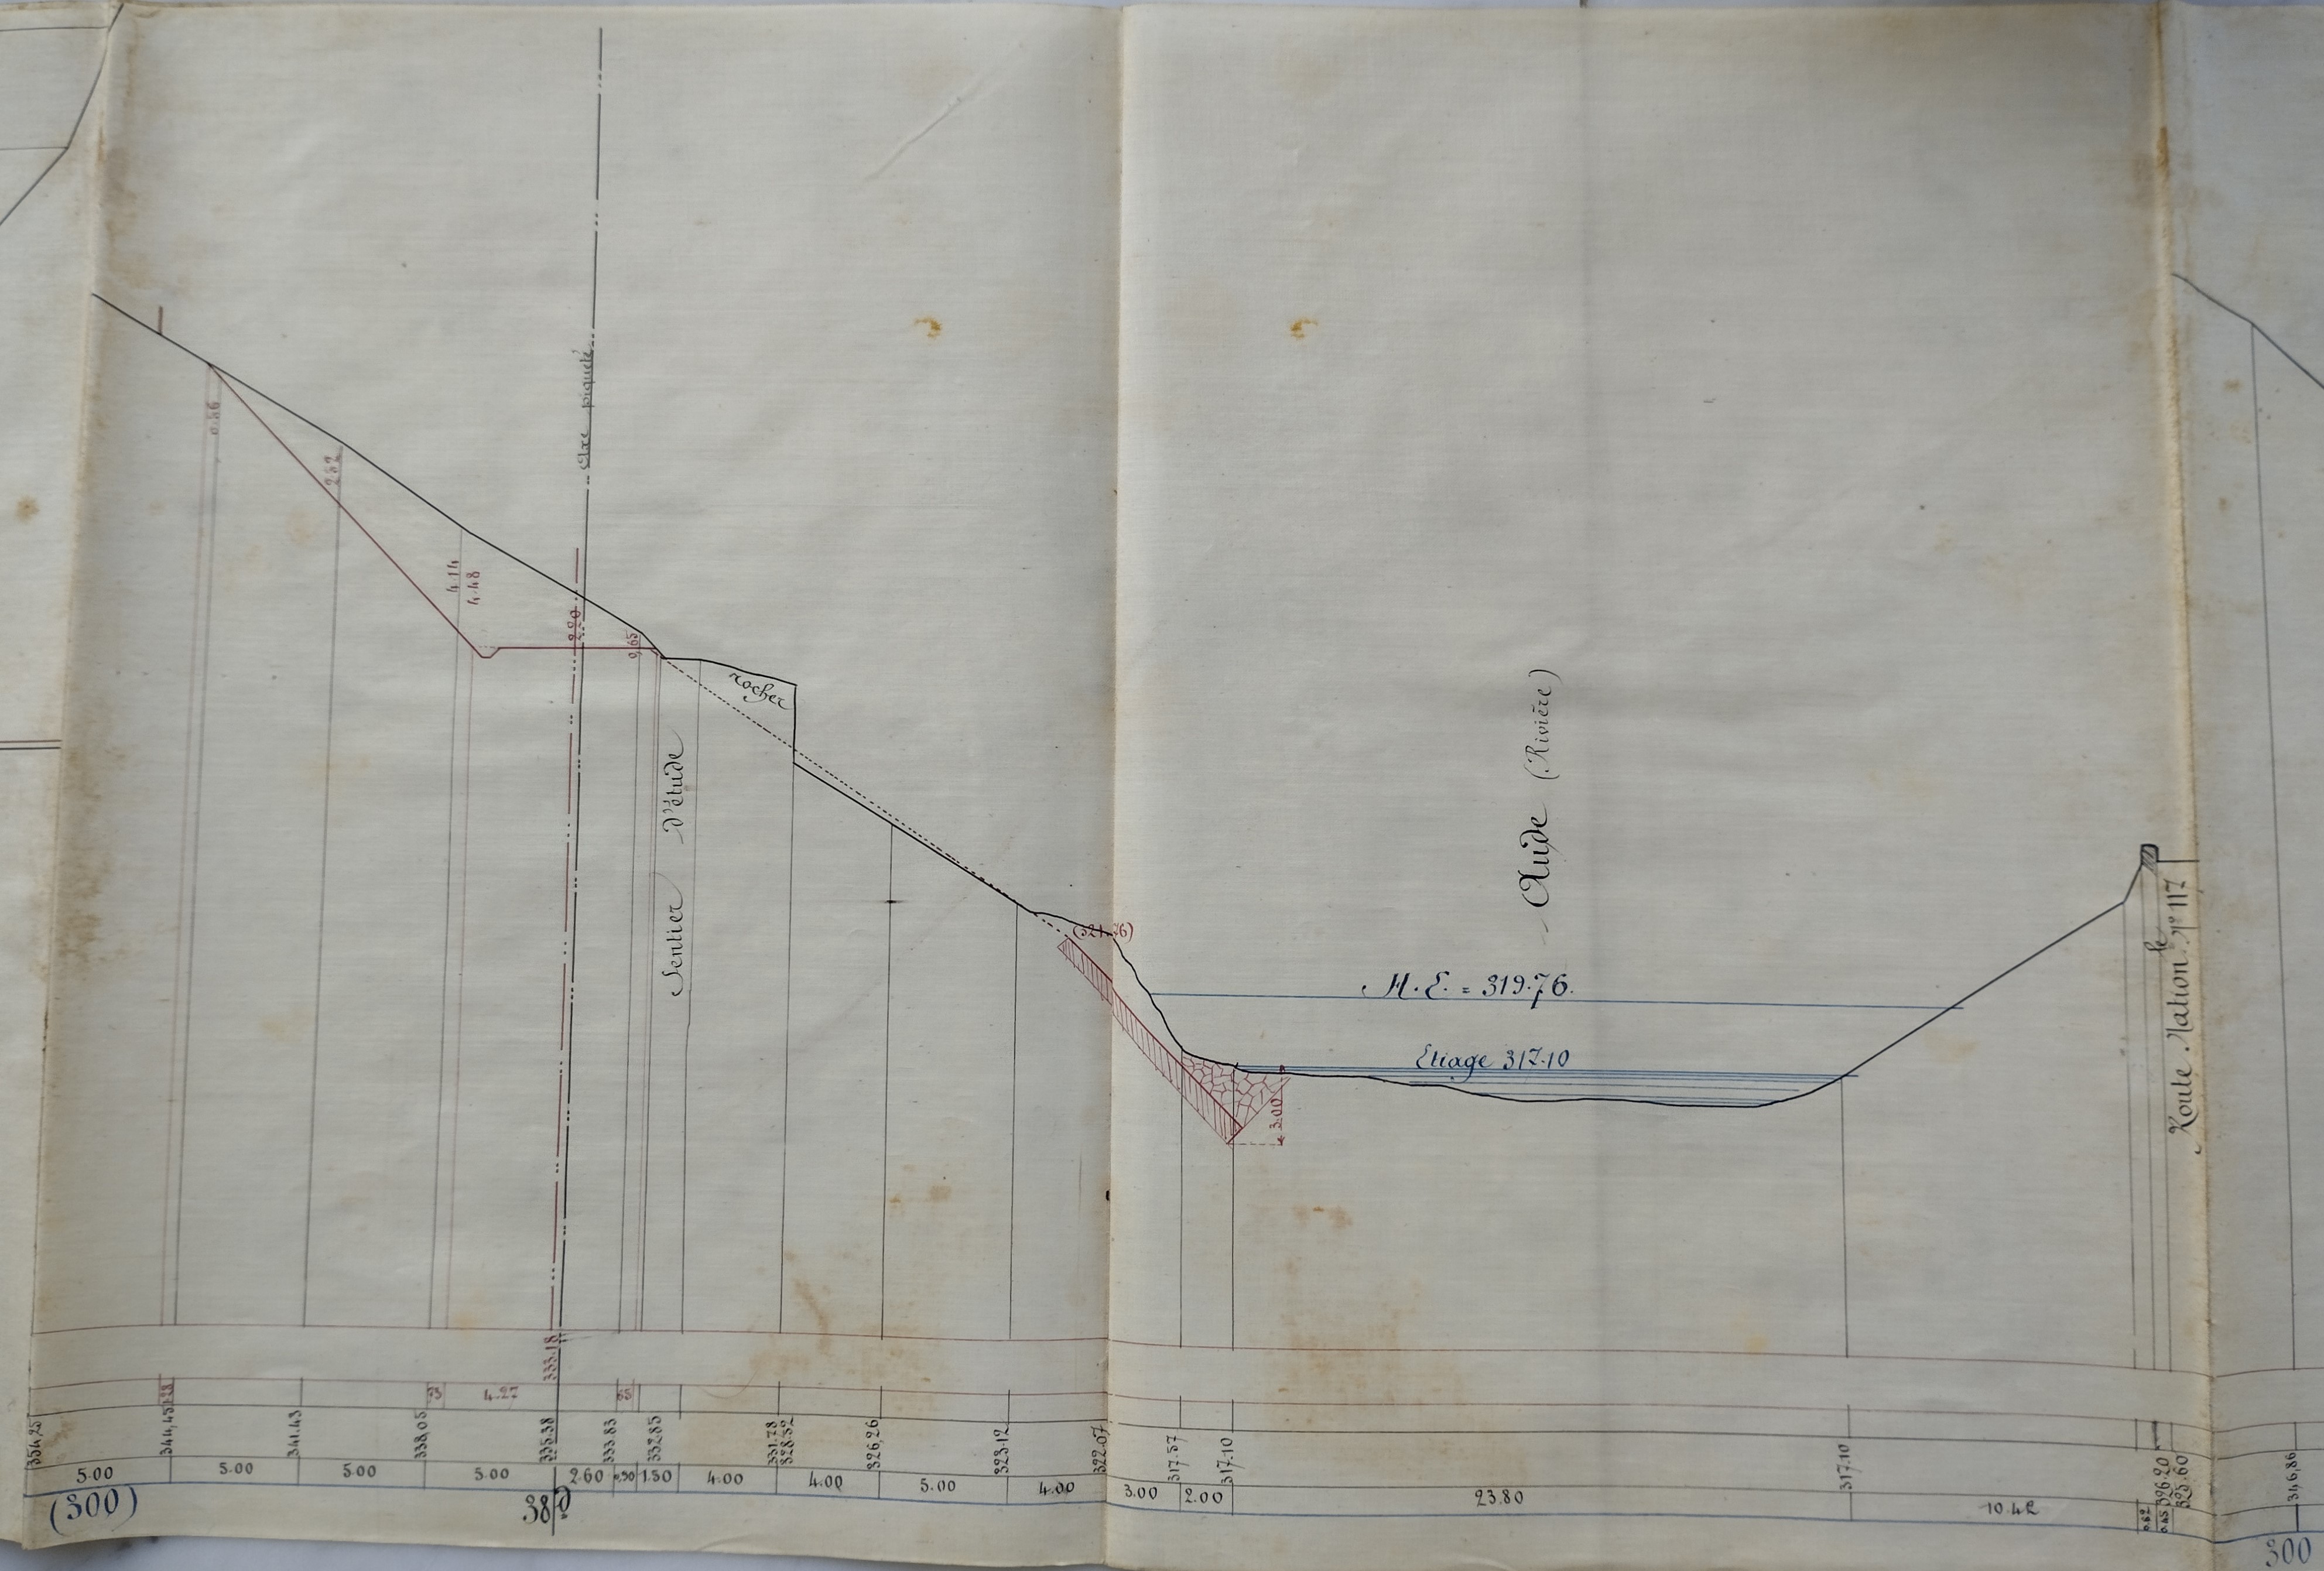 Axe piqué
0.86
2.82
4.14
4.48
2.20
0,65
rocher
Sentier d'étude
(321.76)
Aude (Rivière)
H.E. = 319.76.
Etiage 317.10
3.00
Route Nation.le N° 117
333.18
4.27
344,45
341.43
338,05
335.38
333.83
332.85
331.78
328.32
326,26
323.12
322.07
317.57
317.10
317.10
326.20
325.60
316,86
5.00
5.00
5.00
5.00
2.60
0,90
1.50
4.00
4.00
5.00
4.00
3.00
2.00
23.80
10.42
0.62
0.45
(300)
38
300